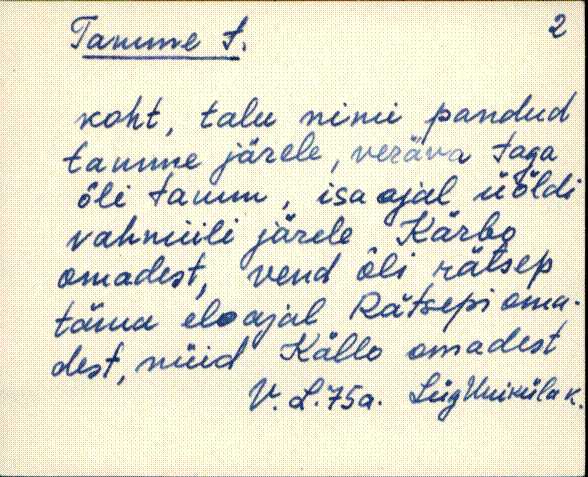 2
Tamme t.
koht, talu nimi pandud
tamme järele, veräva taga
õli tamm, isa ajal üöldi
vahmiili järele Kärbo
omadest, vend õli rätsep
täma eloajal Rätsepi oma-
dest, nüid Källo omadest
V. L. 75a. Lüg Unikülak.